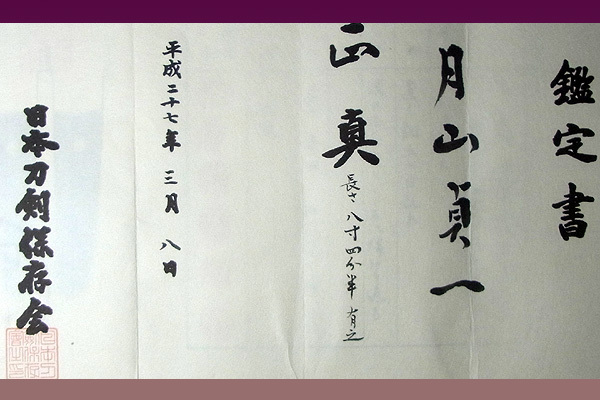 鑑定書
月山貞一
正真
長さ八寸四分半有之
平成二十七年三月八日
日本刀剣保存会